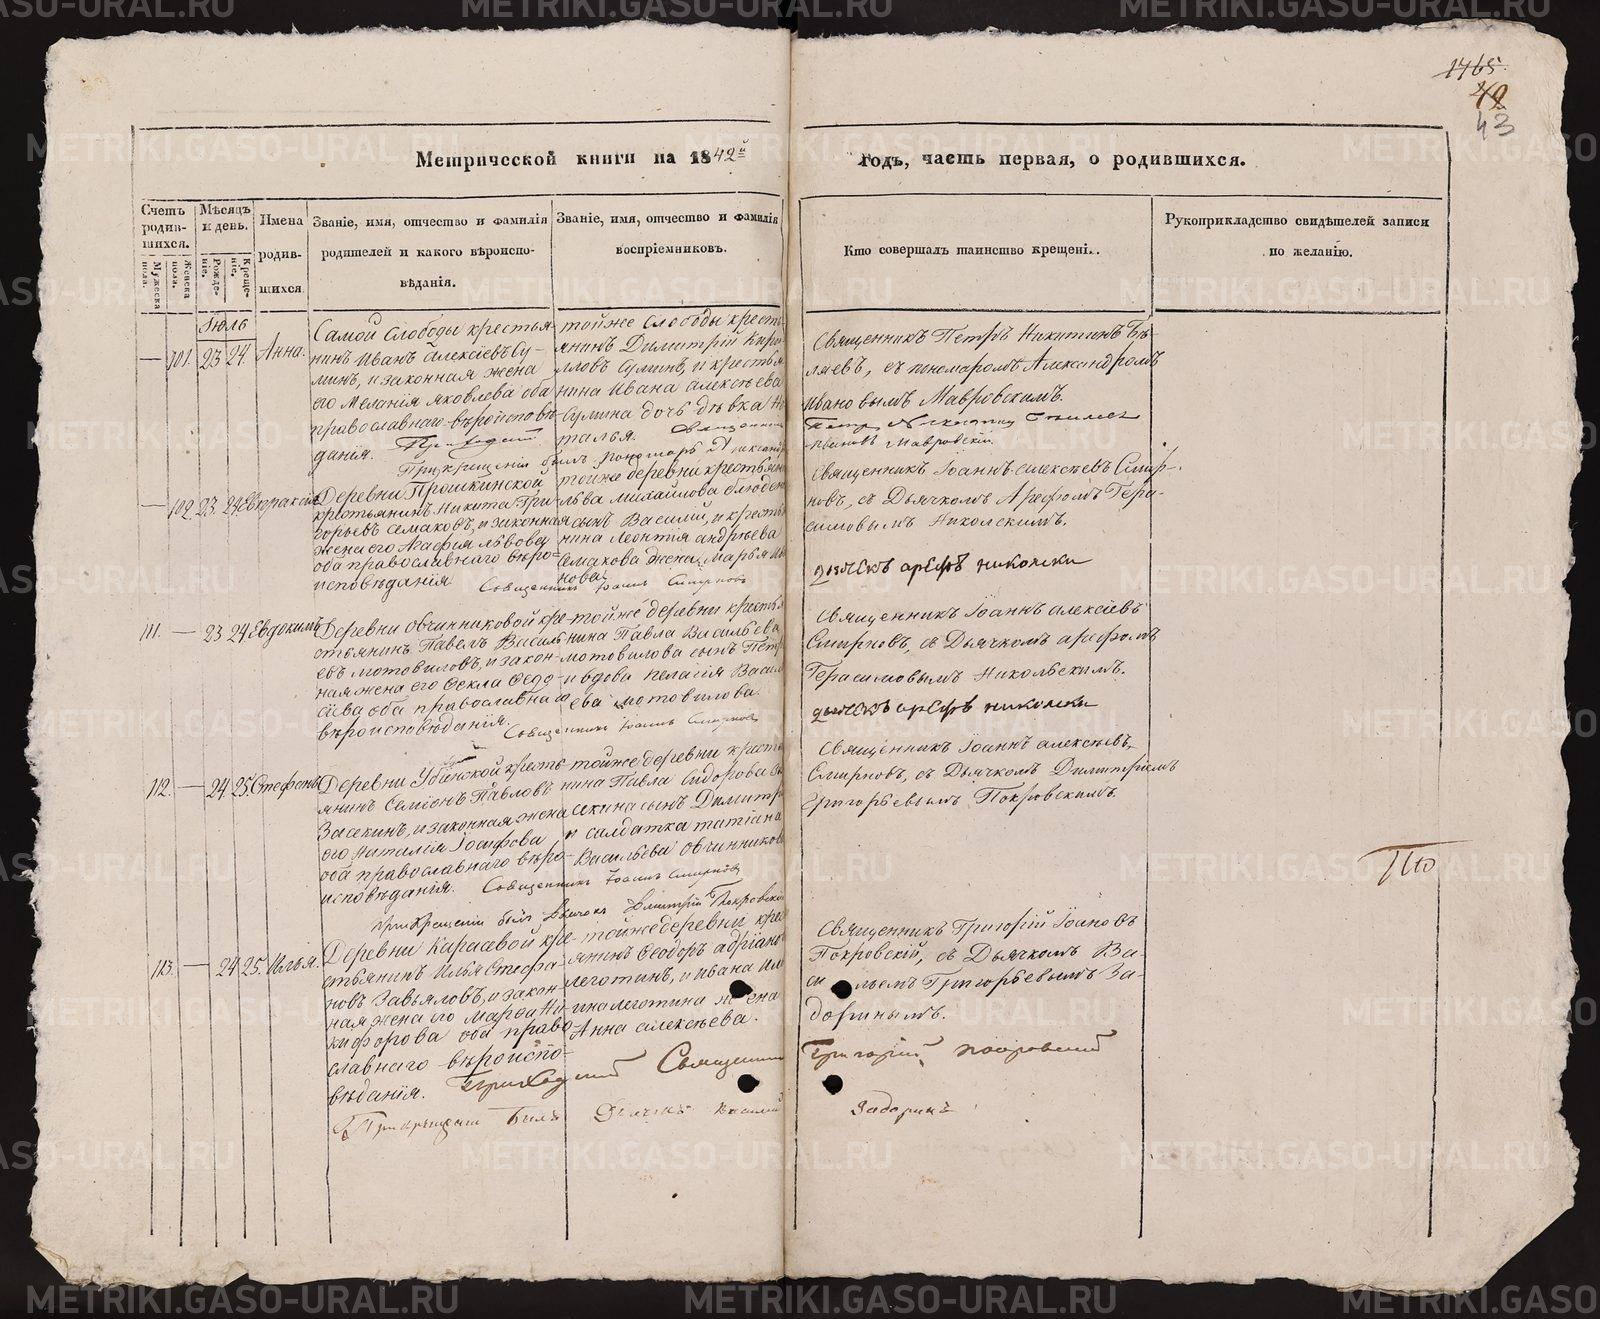 1765.
42
43
Метрической книги на 1842й
Годъ, часть первая, о родившихся.
Счетъ родив-шихся.
Мужеска пола.
Женска пола.
Мѣсяцъ и день.
Рожде-нiе.
Креще-нiе.
Имена родив-шихся
Званiе, имя, отчество и фамилiя
родителей и какого вѣроиспо-
вѣданiя.
Званiе, имя, отчество и фамилiя
воспрiемниковъ.
Кто совершалъ таинство крещенi..
Рукоприкладство свидѣтелей записи
по желанiю.
Iюль
— 101. 23 24. Анна.
Самой слободы крестья-
нинъ Иванъ Алексiевъ Су-
минъ, и законная жена
его Меланiя Яковлева оба
православнаго вѣроисповѣ
данiя. Приходский
тойже слободы кресть
янинъ Димитрiй Кири
лловъ Суминъ, и крестья
нина Ивана Алексѣева
Сумина дочь дѣвка На
талья. Священник
При крещенiи былъ пономарь Александр
Священникъ Петръ Никитинъ Бѣ-
ляевъ, съ пономаромъ Александромъ
Ивановымъ Мавровскимъ.
Петр Никитин
Ивановъ Мавровскiй.
— 102. 23. 24 Евпраксiя
Деревни Прошкинской
крестьянинъ Никита Гри-
горьевъ Семаковъ, и законная
жена его Агафiя Львова
оба православнаго вѣро-
исповѣданiя
тойже деревни крестьян
Льва Михайлова
сынъ Василiй, и кресть
нина Леонтiя Андрѣева
Семакова жена Марья Ив
нова.
Священникъ Iоаннъ Смирновъ
Священникъ Iоаннъ Алексѣевъ Смир-
новъ, съ Дьячкомъ Арефомъ Гера-
симовымъ Никольскимъ.
дьячекъ арефъ николски
111. — 23 24. Евдокимъ
Деревни Овчинниковой кре-
стьянинъ Павелъ Василь
евъ Мотовиловъ, и закон-
ная жена его Фекла Федо
сiева оба православнаго
вѣроисповѣданiя.
тойже деревни кресть
нина Павла Васильева
Мотовилова сынъ Петръ
и вдова Пелагiя Васил
ева Мотовилова.
Священникъ Iоаннъ Смирновъ
Священникъ Iоаннъ Алексiевъ
Смирновъ, съ Дьячкомъ Арефомъ
Герасимовымъ Никольскимъ.
дьячекъ арефъ николски
112. — 24 25. Стефанъ
Деревни Убинской кресть
янинъ Семiонъ Павловъ
Засекинъ, и законная жена
его Наталiя Iосифова
оба православнаго вѣро-
исповѣданiя.
тойже деревни кресть
нина Павла Сидорова За
секина сынъ Димитр
и салдатка Татiана
Васильева Овчинников
Священникъ Iоаннъ Смирновъ
При крещенiи былъ Дьячокъ Димитрiй Покровской
Священникъ Iоаннъ Алексѣевъ
Смирновъ, съ Дьячкомъ Димитрiемъ
Григорьевымъ Покровскимъ.
113. — 24 25. Илья.
Деревни Карасевой кре-
стьянинъ Илья Стефа-
новъ Завьяловъ, и закон-
ная жена его Марфа Ни-
кифорова оба право
славнаго вѣроиспо-
вѣданiя.
тойже деревни кре
янинъ Феодоръ Адрiано
Леготинъ, и Ивана Ил
ина Леготина жена
Анна Алексѣева.
Приходский Священник
При крещении былъ Дьячекъ Василий
Священникъ Григорiй Iоановъ
Покровскiй, съ Дьячкомъ Ва-
си льемъ Григорьевымъ За-
доринымъ.
Григорий Покровский
Задоринъ